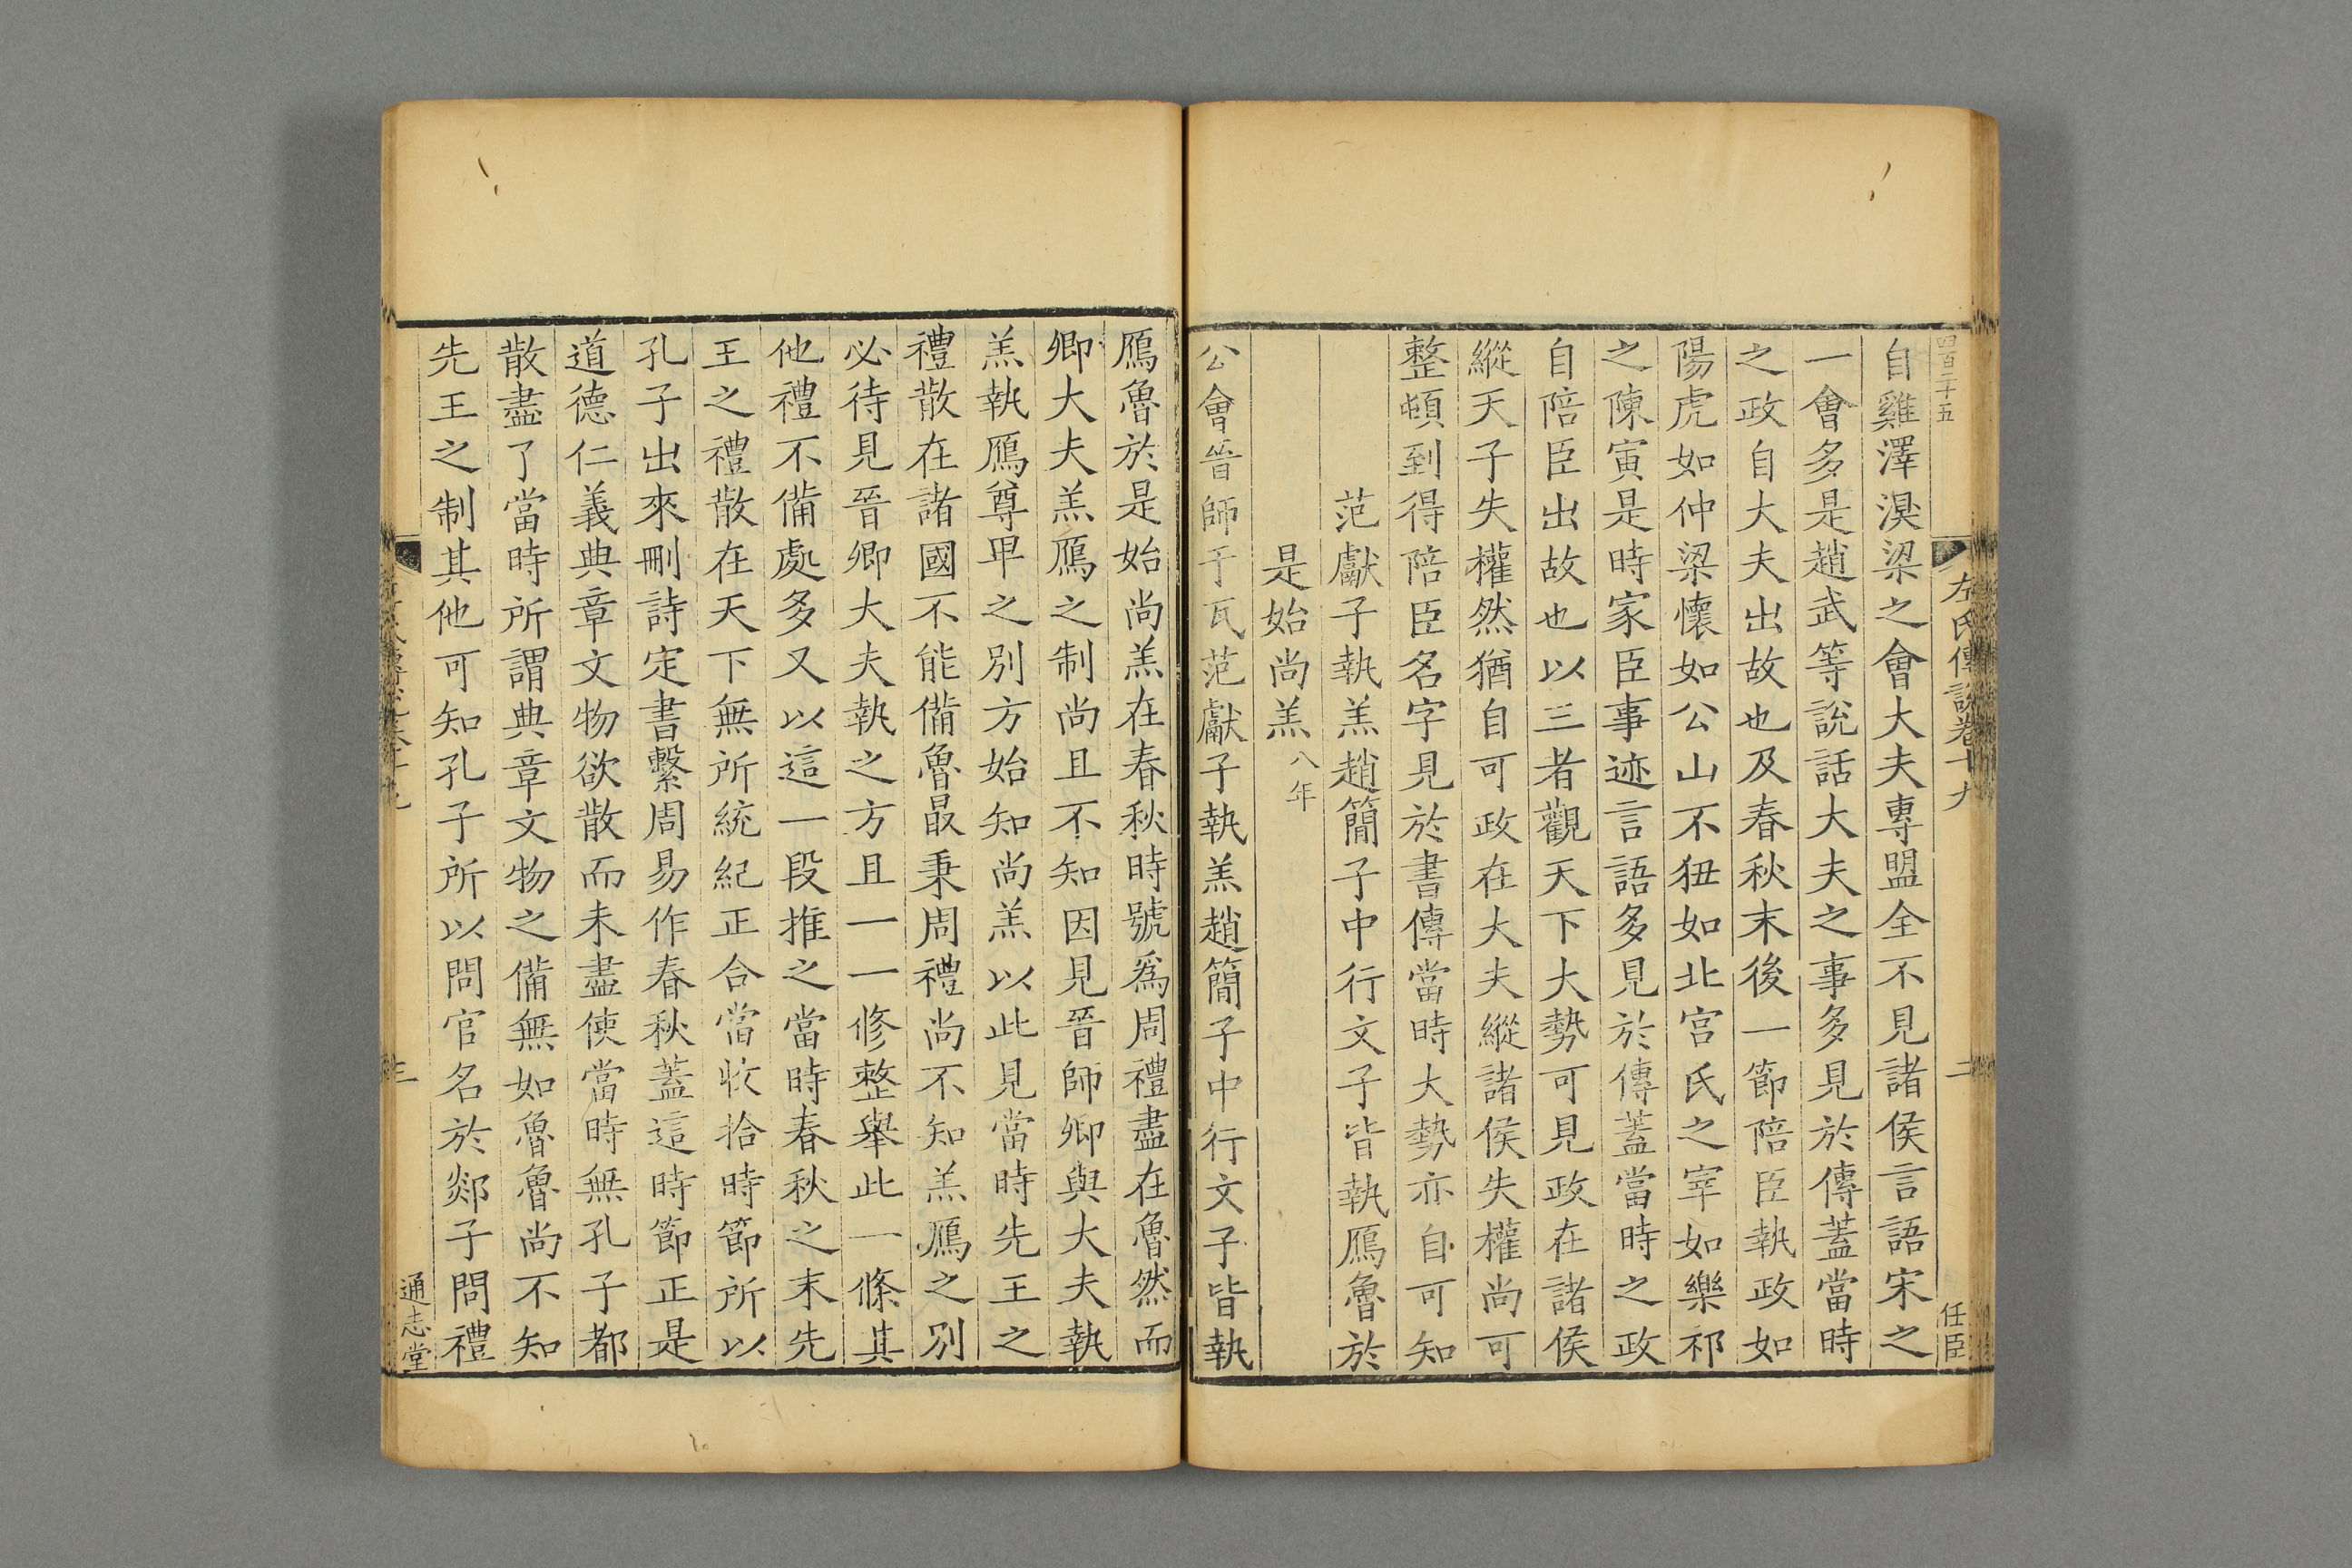 四百二十五
左氏傳說卷十九
二
任臣
自雞澤溴梁之會大夫專盟全不見諸侯言語宋之
一會多是趙武等說話大夫之事多見於傳蓋當時
之政自大夫出故也及春秋末後一節陪臣執政如
陽虎如仲梁懷如公山不狃如北宮氏之宰如樂祁
之陳寅是時家臣事迹言語多見於傳蓋當時之政
自陪臣出故也以三者觀天下大勢可見政在諸侯
縱天子失權然猶自可政在大夫縱諸侯失權尚可
整頓到得陪臣名字見於書傳當時大勢亦自可知
范獻子執羔趙簡子中行文子皆執鴈魯於
是始尚羔八年
公會晉師于瓦范獻子執羔趙簡子中行文子皆執
鴈魯於是始尚羔在春秋時號爲周禮盡在魯然而
卿大夫羔鴈之制尚且不知因見晉師卿與大夫執
羔執鴈尊卑之別方始知尚羔以此見當時先王之
禮散在諸國不能備魯最秉周禮尚不知羔鴈之別
必待見晉卿大夫執之方且一一修整舉此一條其
他禮不備處多又以這一段推之當時春秋之末先
王之禮散在天下無所統紀正合當收拾時節所以
孔子出來刪詩定書繫周易作春秋蓋這時節正是
道德仁義典章文物欲散而未盡使當時無孔子都
散盡了當時所謂典章文物之備無如魯魯尚不知
先王之制其他可知孔子所以問官名於郯子問禮
三
通志堂